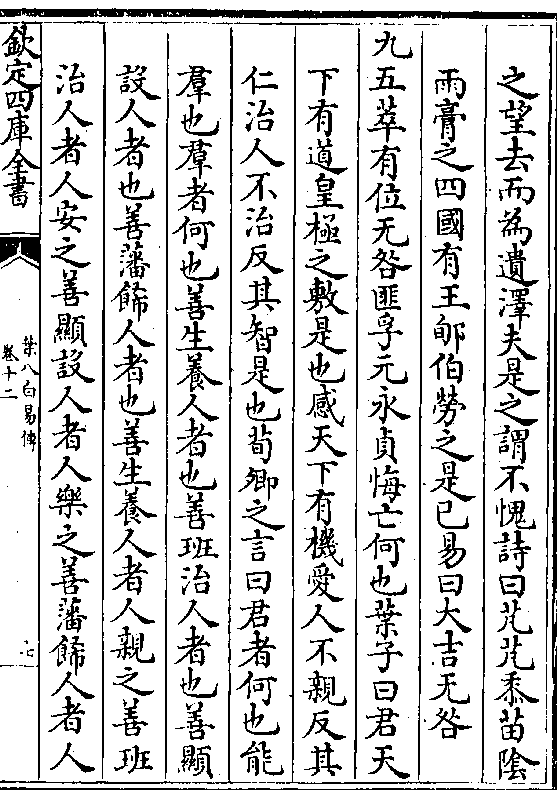 之望去而為遺澤夫是之謂不愧詩曰芃芃黍苗隂
雨膏之四國有王郇伯勞之是已易曰大吉无咎
九五萃有位无咎匪孚元永貞悔亡何也葉子曰君天
下有道皇極之敷是也感天下有機愛人不親反其
仁治人不治反其智是也荀卿之言曰君者何也能
羣也羣者何也善生養人者也善班治人者也善顯
設人者也善藩餙人者也善生養人者人親之善班
治人者人安之善顯設人者人樂之善藩餙人者人
欽定四庫全書
葉八白易傳
卷十二
七